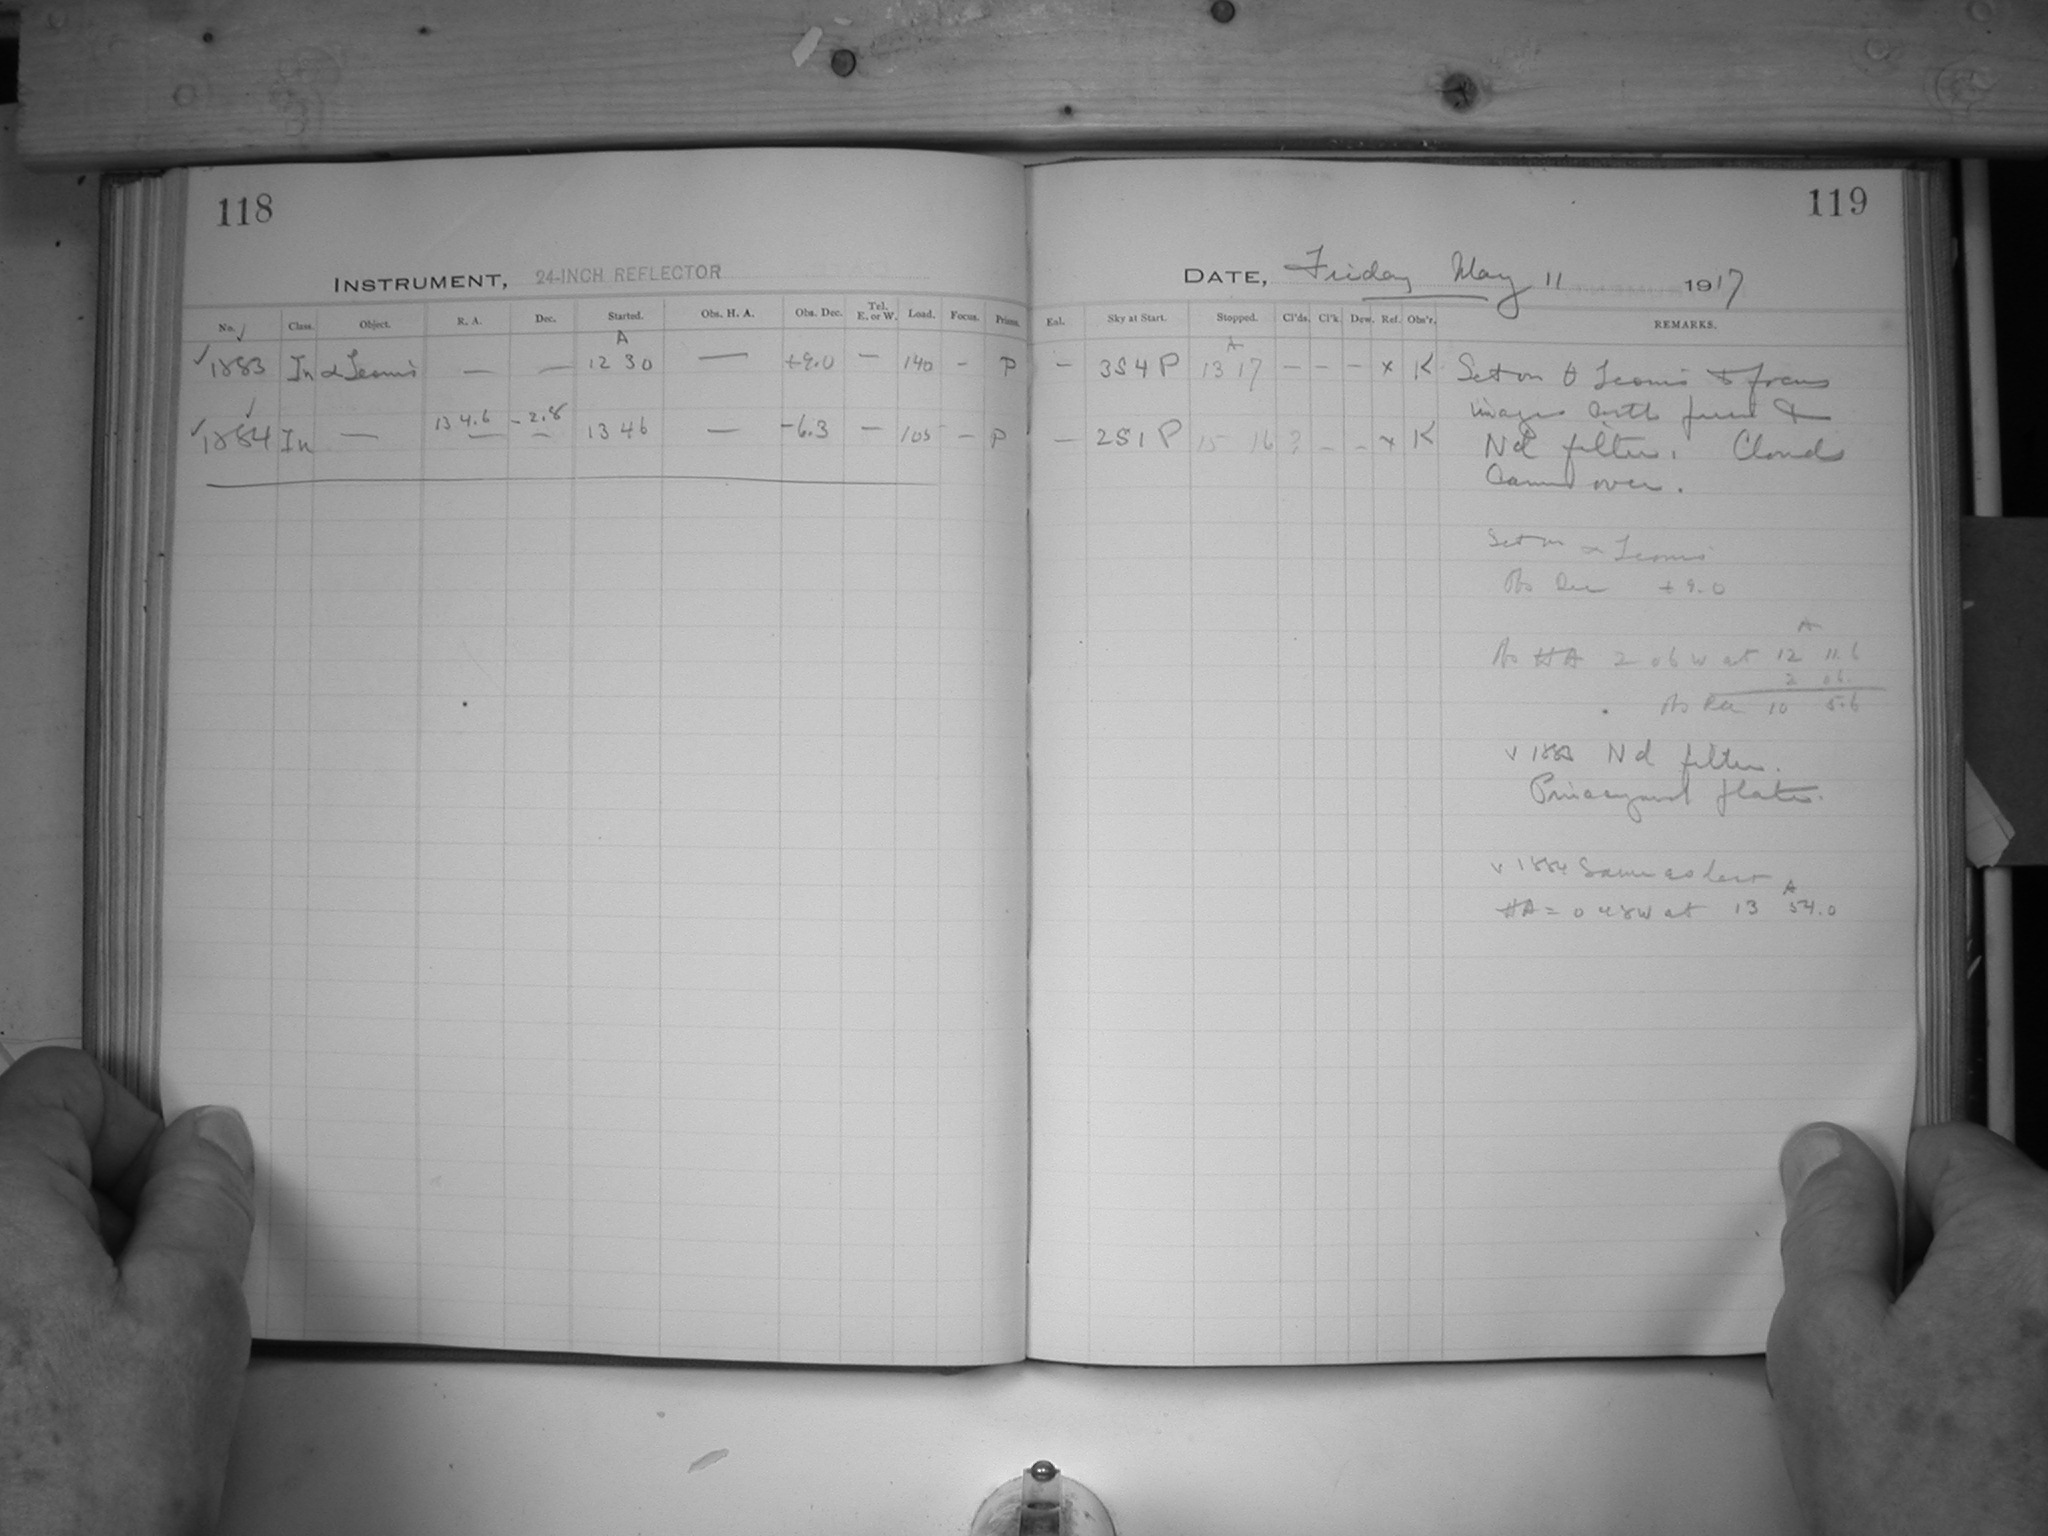 118
INSTRUMENT, 24-INCH REFLECTOR
No. Class. Object. R. A. Dec. Started. Obs. H. A. Obs. Dec. Tel. E. or W. Load. Focus. Prisms.
A
✓1883 In α Leonis — — 12 30 — +9.0 — 140 – P
✓1884 In — 13 4.6 -2.8 13 46 — -6.3 — 105 – P
119
DATE, Friday May 11 1917
Enl. Sky at Start. Stopped. Cl'ds. Cl'k. Dew. Ref. Obs'r. REMARKS.
A
– 3S4P 13 17 – – – x K Set on θ Leonis & focus
images with &
— 2S1P 15 16 ? – – x K Nd filter. Clouds
came over.
Set on α Leonis
Obs Dec +9.0
A
Obs HA 2 06 W at 12 11.6
2 06.
Obs RA 10 5.6
v 1883 Nd filter.
v 1884 Same as last
A
HA = 0 48 W at 13 54.0